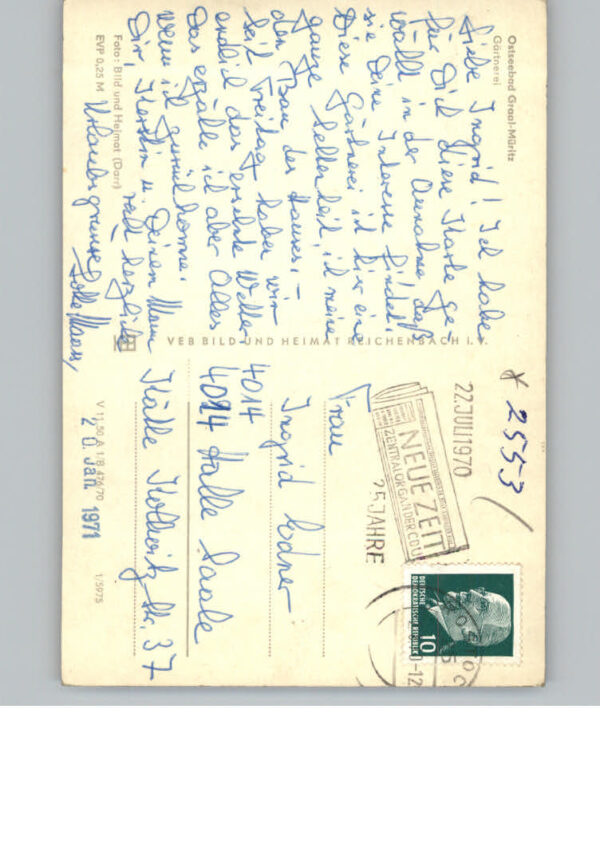 Ostseebad Graal-Müritz
Gärtnerei
Liebe Ingrid! Ich habe
für Dich diese Karte ge-
wählt in der Annahme, daß
sie Dein Interesse findet.
Diese Gärtnerei ist hier eine
ganze Seltenheit, ist meine
der Bau des Hauses. -
Seit Freitag haben wir
endlich das ersehnte Wetter.
Das erzähle ich aber Alles
wenn ich zurückkomme.
Dir, Kerstin u. Deinen Mann
recht herzliche
Urlaubsgrüsse
Foto: Bild und Heimat (Darr)
EVP 0,25 M
VEB BILD UND HEIMAT REICHENBACH I. V.
* 2553/
22.JULI 1970
NEUE ZEIT
ZENTRALORGAN DER CDU
25 JAHRE
DEUTSCHE
DEMOKRATISCHE REPUBLIK
10
Frau
Ingrid
4014
4014 Halle Saale
Käthe Kollwitz Str. 37
V 11,50 A 1/B 476/70
20. Jan. 1971
1/5975